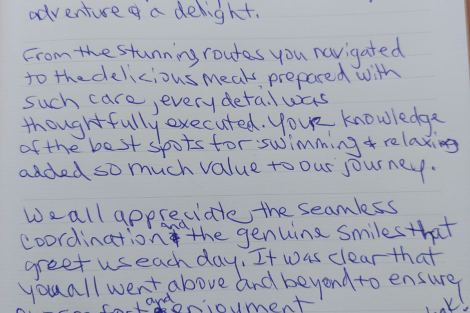 adventure & a delight.
From the stunning routes you navigated
to the delicious meals, prepared with
such care, every detail was
thoughtfully executed. Your knowledge
of the best spots for swimming & relaxing
added so much value to our journey.
We all appreciate the seamless
coordination and the genuine smiles that
greet us each day. It was clear that
you all went above and beyond to ensure
and enjoyment